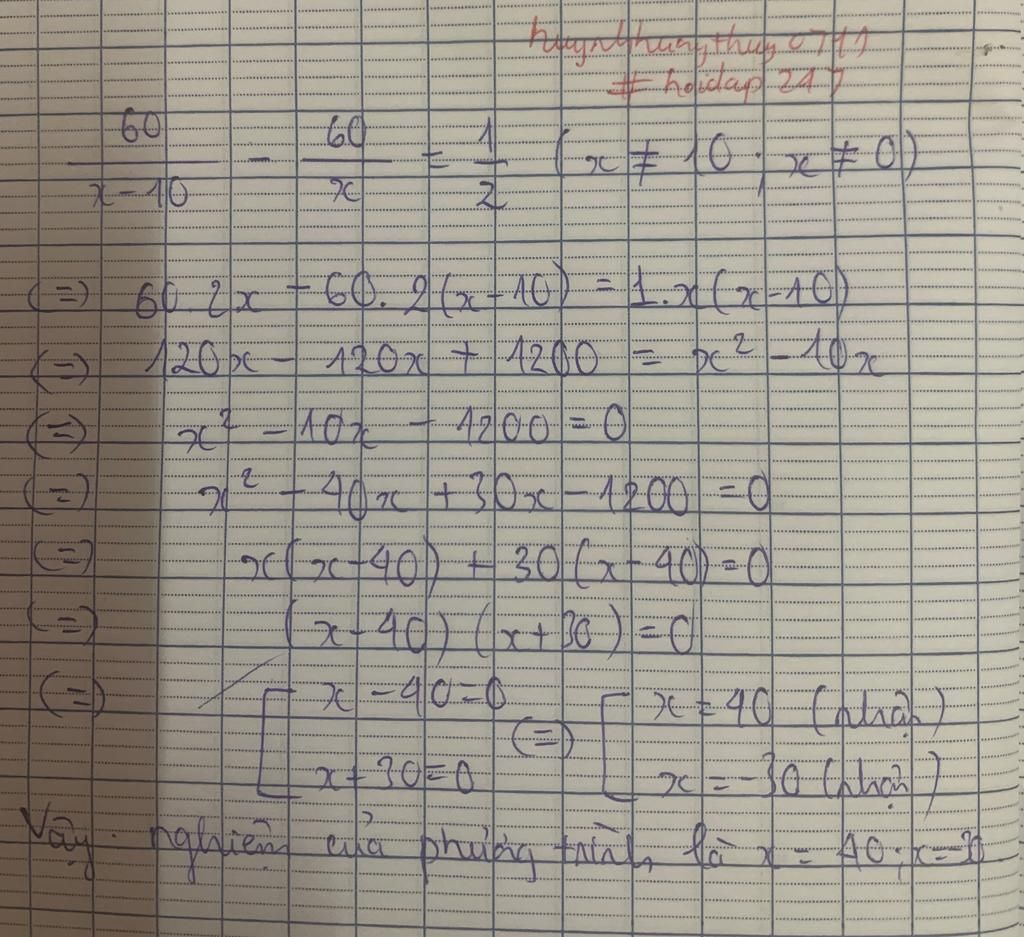 huynhhuongthuy0711
# hoidap 247
60/(x-10) - 60/x = 1/2 (x ≠ 10 ; x ≠ 0)
(=) 60.2x - 60.2(x-10) = 1.x(x-10)
(=) 120x - 120x + 1200 = x² - 10x
(=) x² - 10x - 1200 = 0
(=) x² - 40x + 30x - 1200 = 0
(=) x(x-40) + 30(x-40) = 0
(=) (x-40)(x+30) = 0
(=) [ x - 40 = 0 (=) [ x = 40 (nhận)
x + 30 = 0 x = -30 (nhận)
Vậy nghiệm của phương trình là x = 40 ; x = -30